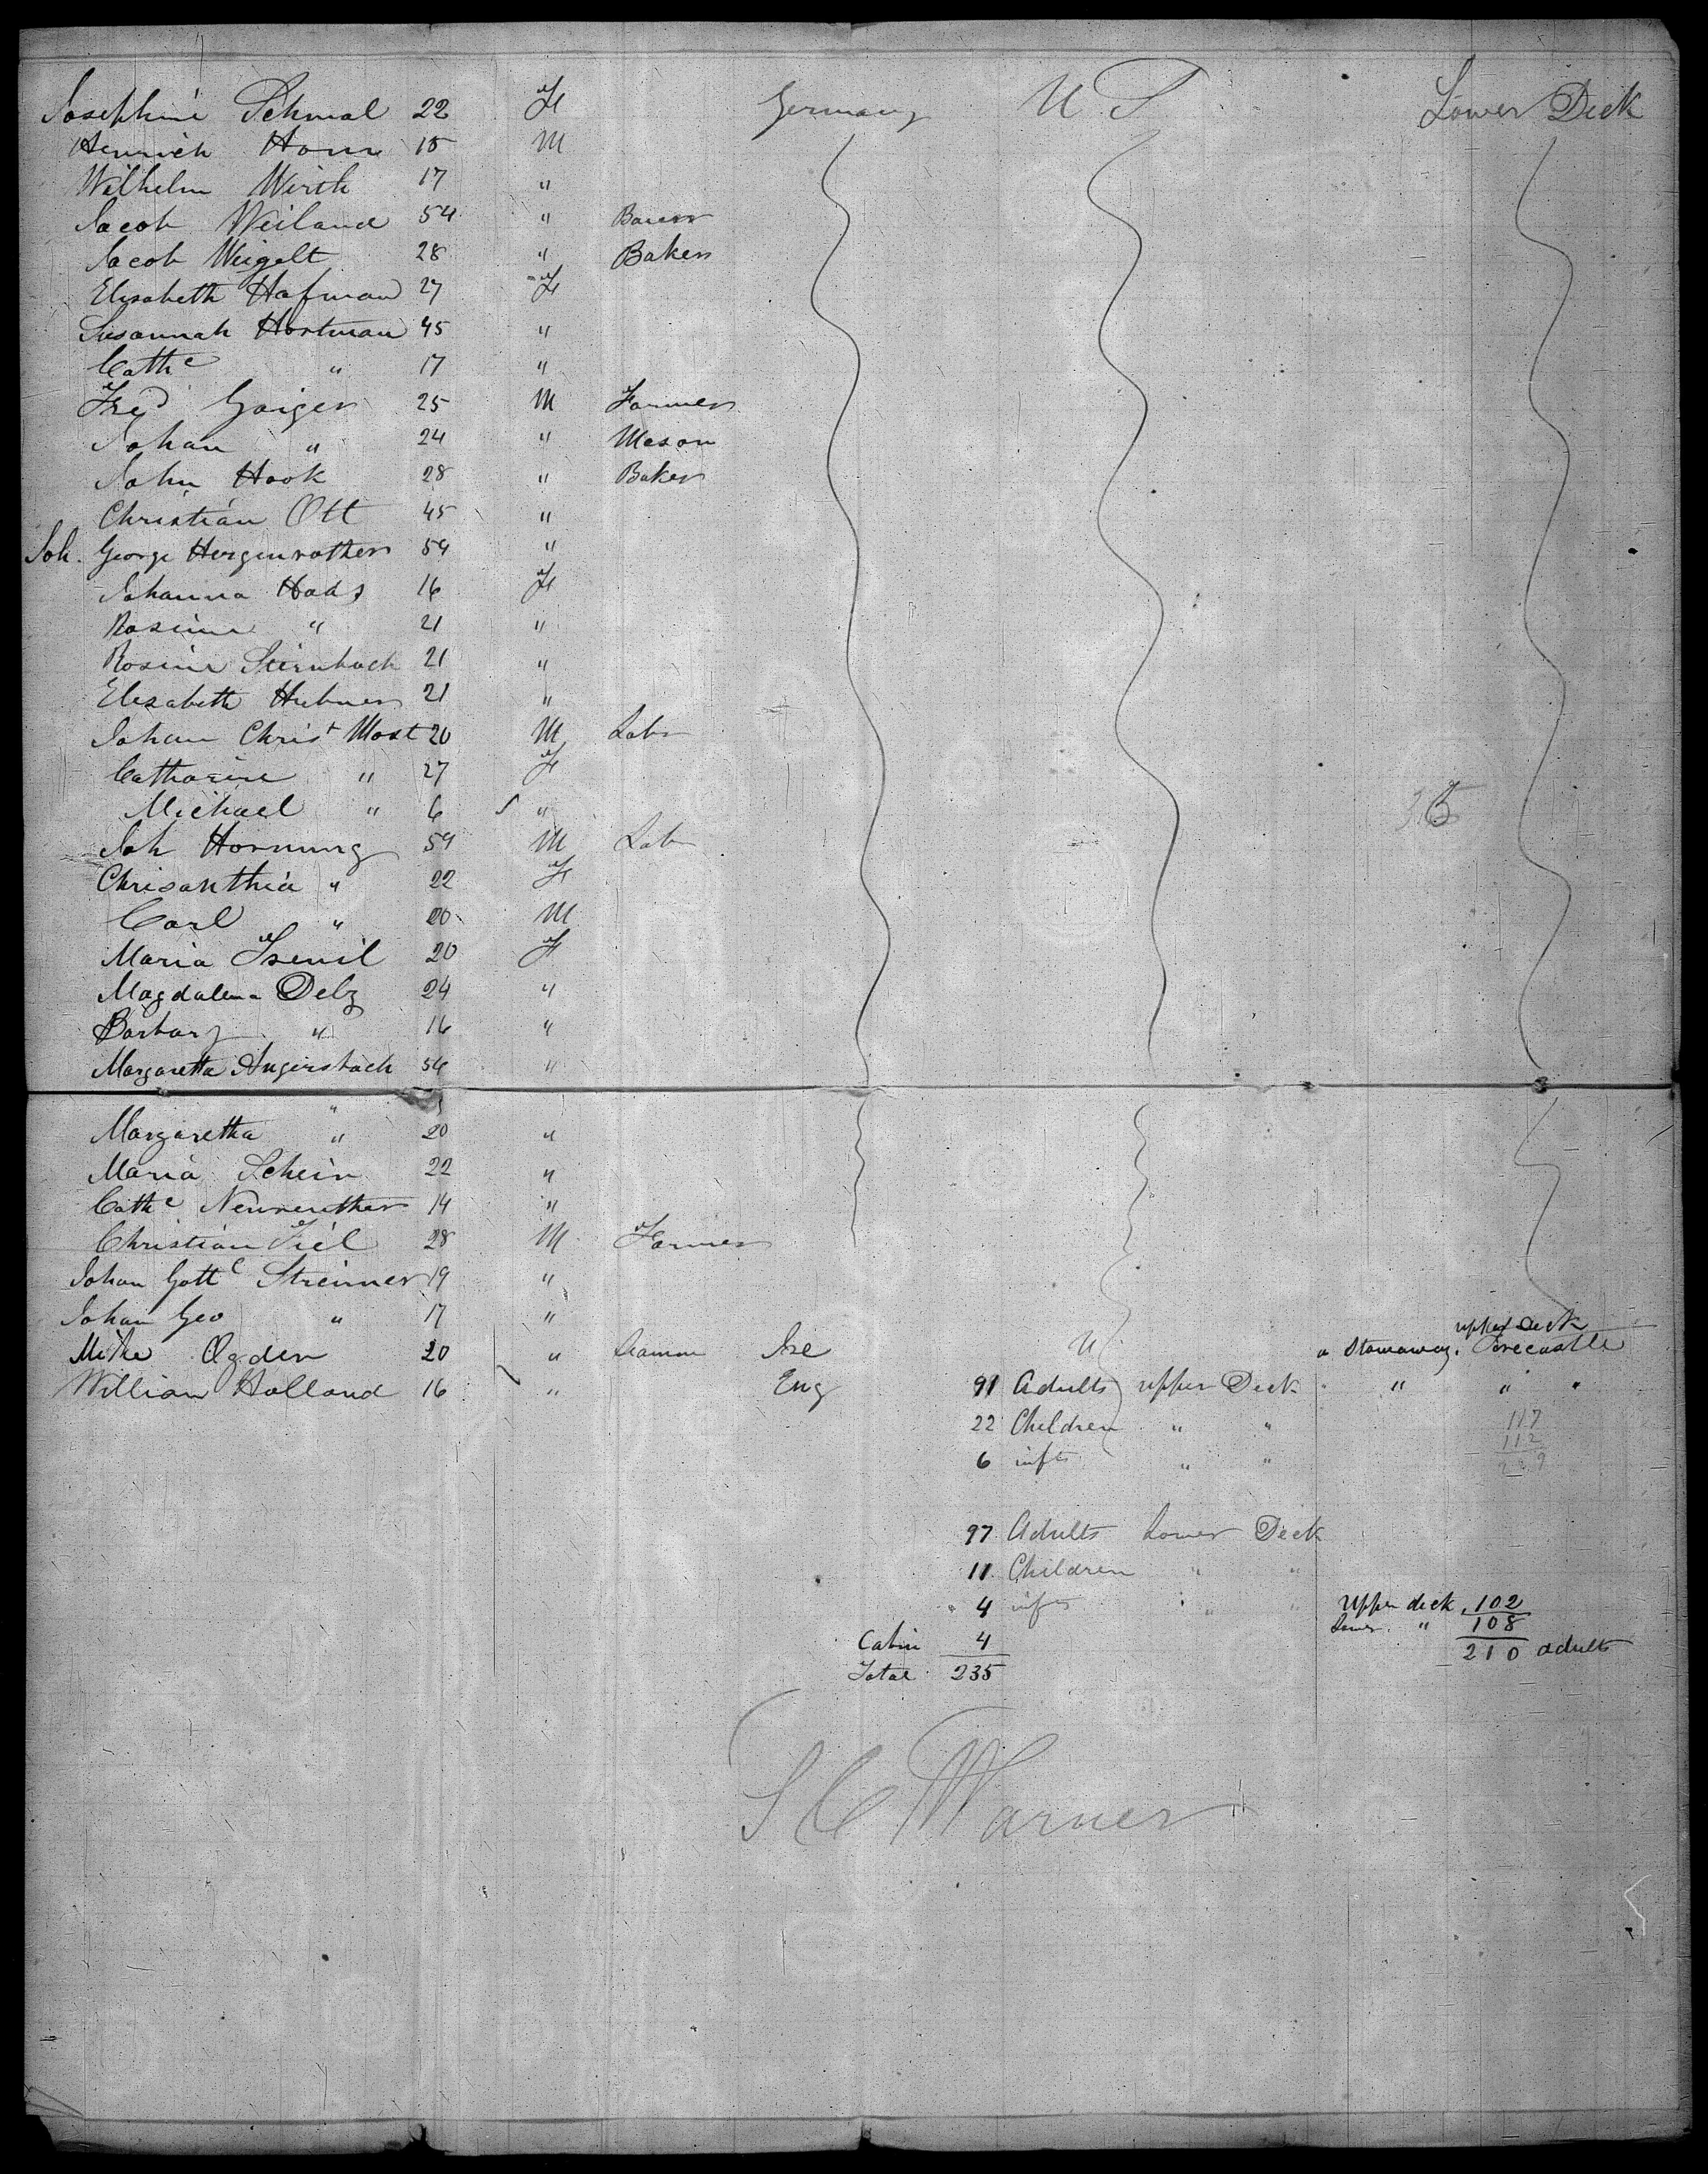 Josephine Schmal 22 F Germany U S Lower Deck
Heinrich Horn 18 M
Wilhelm Wirth 17 "
Jacob Weiland 54 "
Jacob Weigelt 28 " Baker
Elisabeth Hafman 27 F
Susannah Hartman 45 "
Cathe " 17 "
Fred Gaiger 25 M Farmer
Johan " 24 " Mason
John Hook 28 " Baker
Christian Ott 45 "
Joh. George Hergenrother 59 "
Johanna Hads 16 F
Rosina " 21 "
Rosine Steinbach 21 "
Elisabeth Hubner 21 "
Johan Christ Most 26 M Labr
Catharine " 27 F
Michael " 6 "
Joh Hornung 59 M Labr
Chrisanthia " 22 F
Carl " 20 M
Maria 20 F
Magdalena Delz 24 "
Barbary " 16 "
Margaretta Angersbach 56 "
"
Margaretha " 20 "
Maria Schein 22 "
Cathe Neureuther 14 "
Christian Fiel 28 M Farmer
Johan Gottl Streimer 19 "
Johan Geo " 17 "
upper Deck
Mike Ogden 20 " Seaman Ire U a Stowaway. Forecastle
William Holland 16 " Eng 91 Adults upper Deck " " "
22 Children " " 117
112
6 infts " " 229
97 Adults Lower Deck
11 Children " "
4 infts " " Upper deck 102
Lower " 108
Cabin 4 210 adults
Total 235
S C Warner